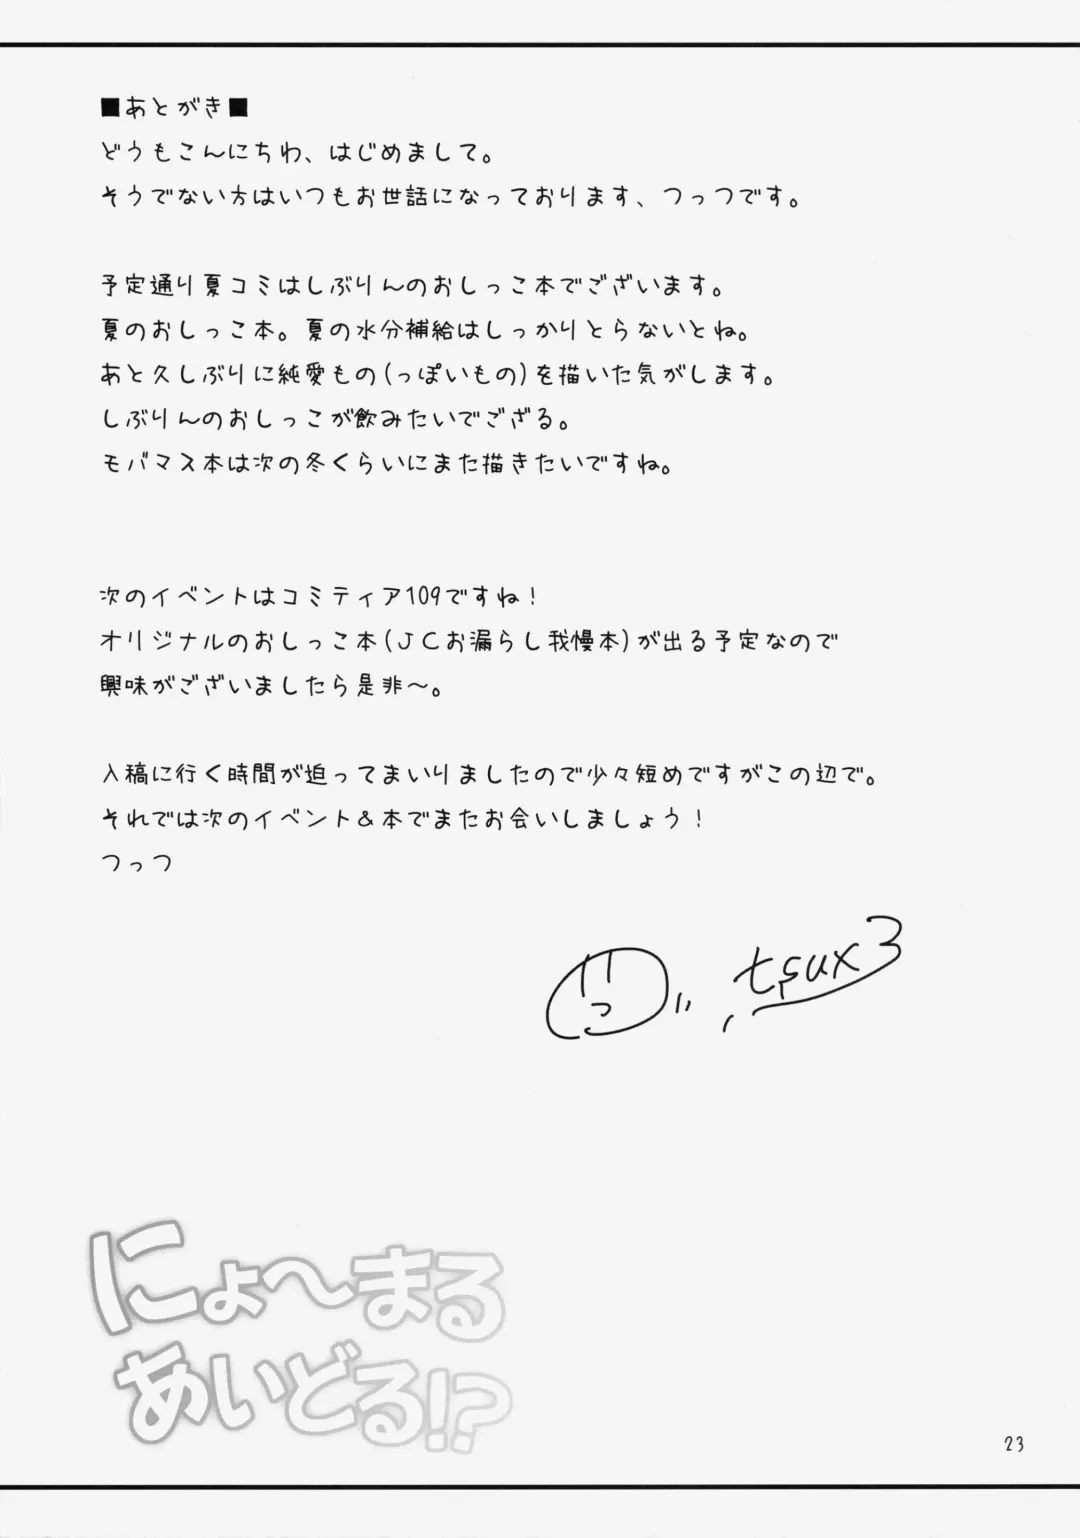 ■あとがき■
どうもこんにちわ、はじめまして。
そうでない方はいつもお世話になっております、つっつです。
予定通り夏コミはしぶりんのおしっこ本でございます。
夏のおしっこ本。夏の水分補給はしっかりとらないとね。
あと久しぶりに純愛もの(っぽいもの)を描いた気がします。
しぶりんのおしっこが飲みたいでござる。
モバマス本は次の冬くらいにまた描きたいですね。
次のイベントはコミティア109ですね!
オリジナルのおしっこ本(JCお漏らし我慢本)が出る予定なので
興味がございましたら是非〜。
入稿に行く時間が迫ってまいりましたので少々短めですがこの辺で。
それでは次のイベント&本でまたお会いしましょう!
つっつ
tsux3
にょ〜まる
あいどる!?
23